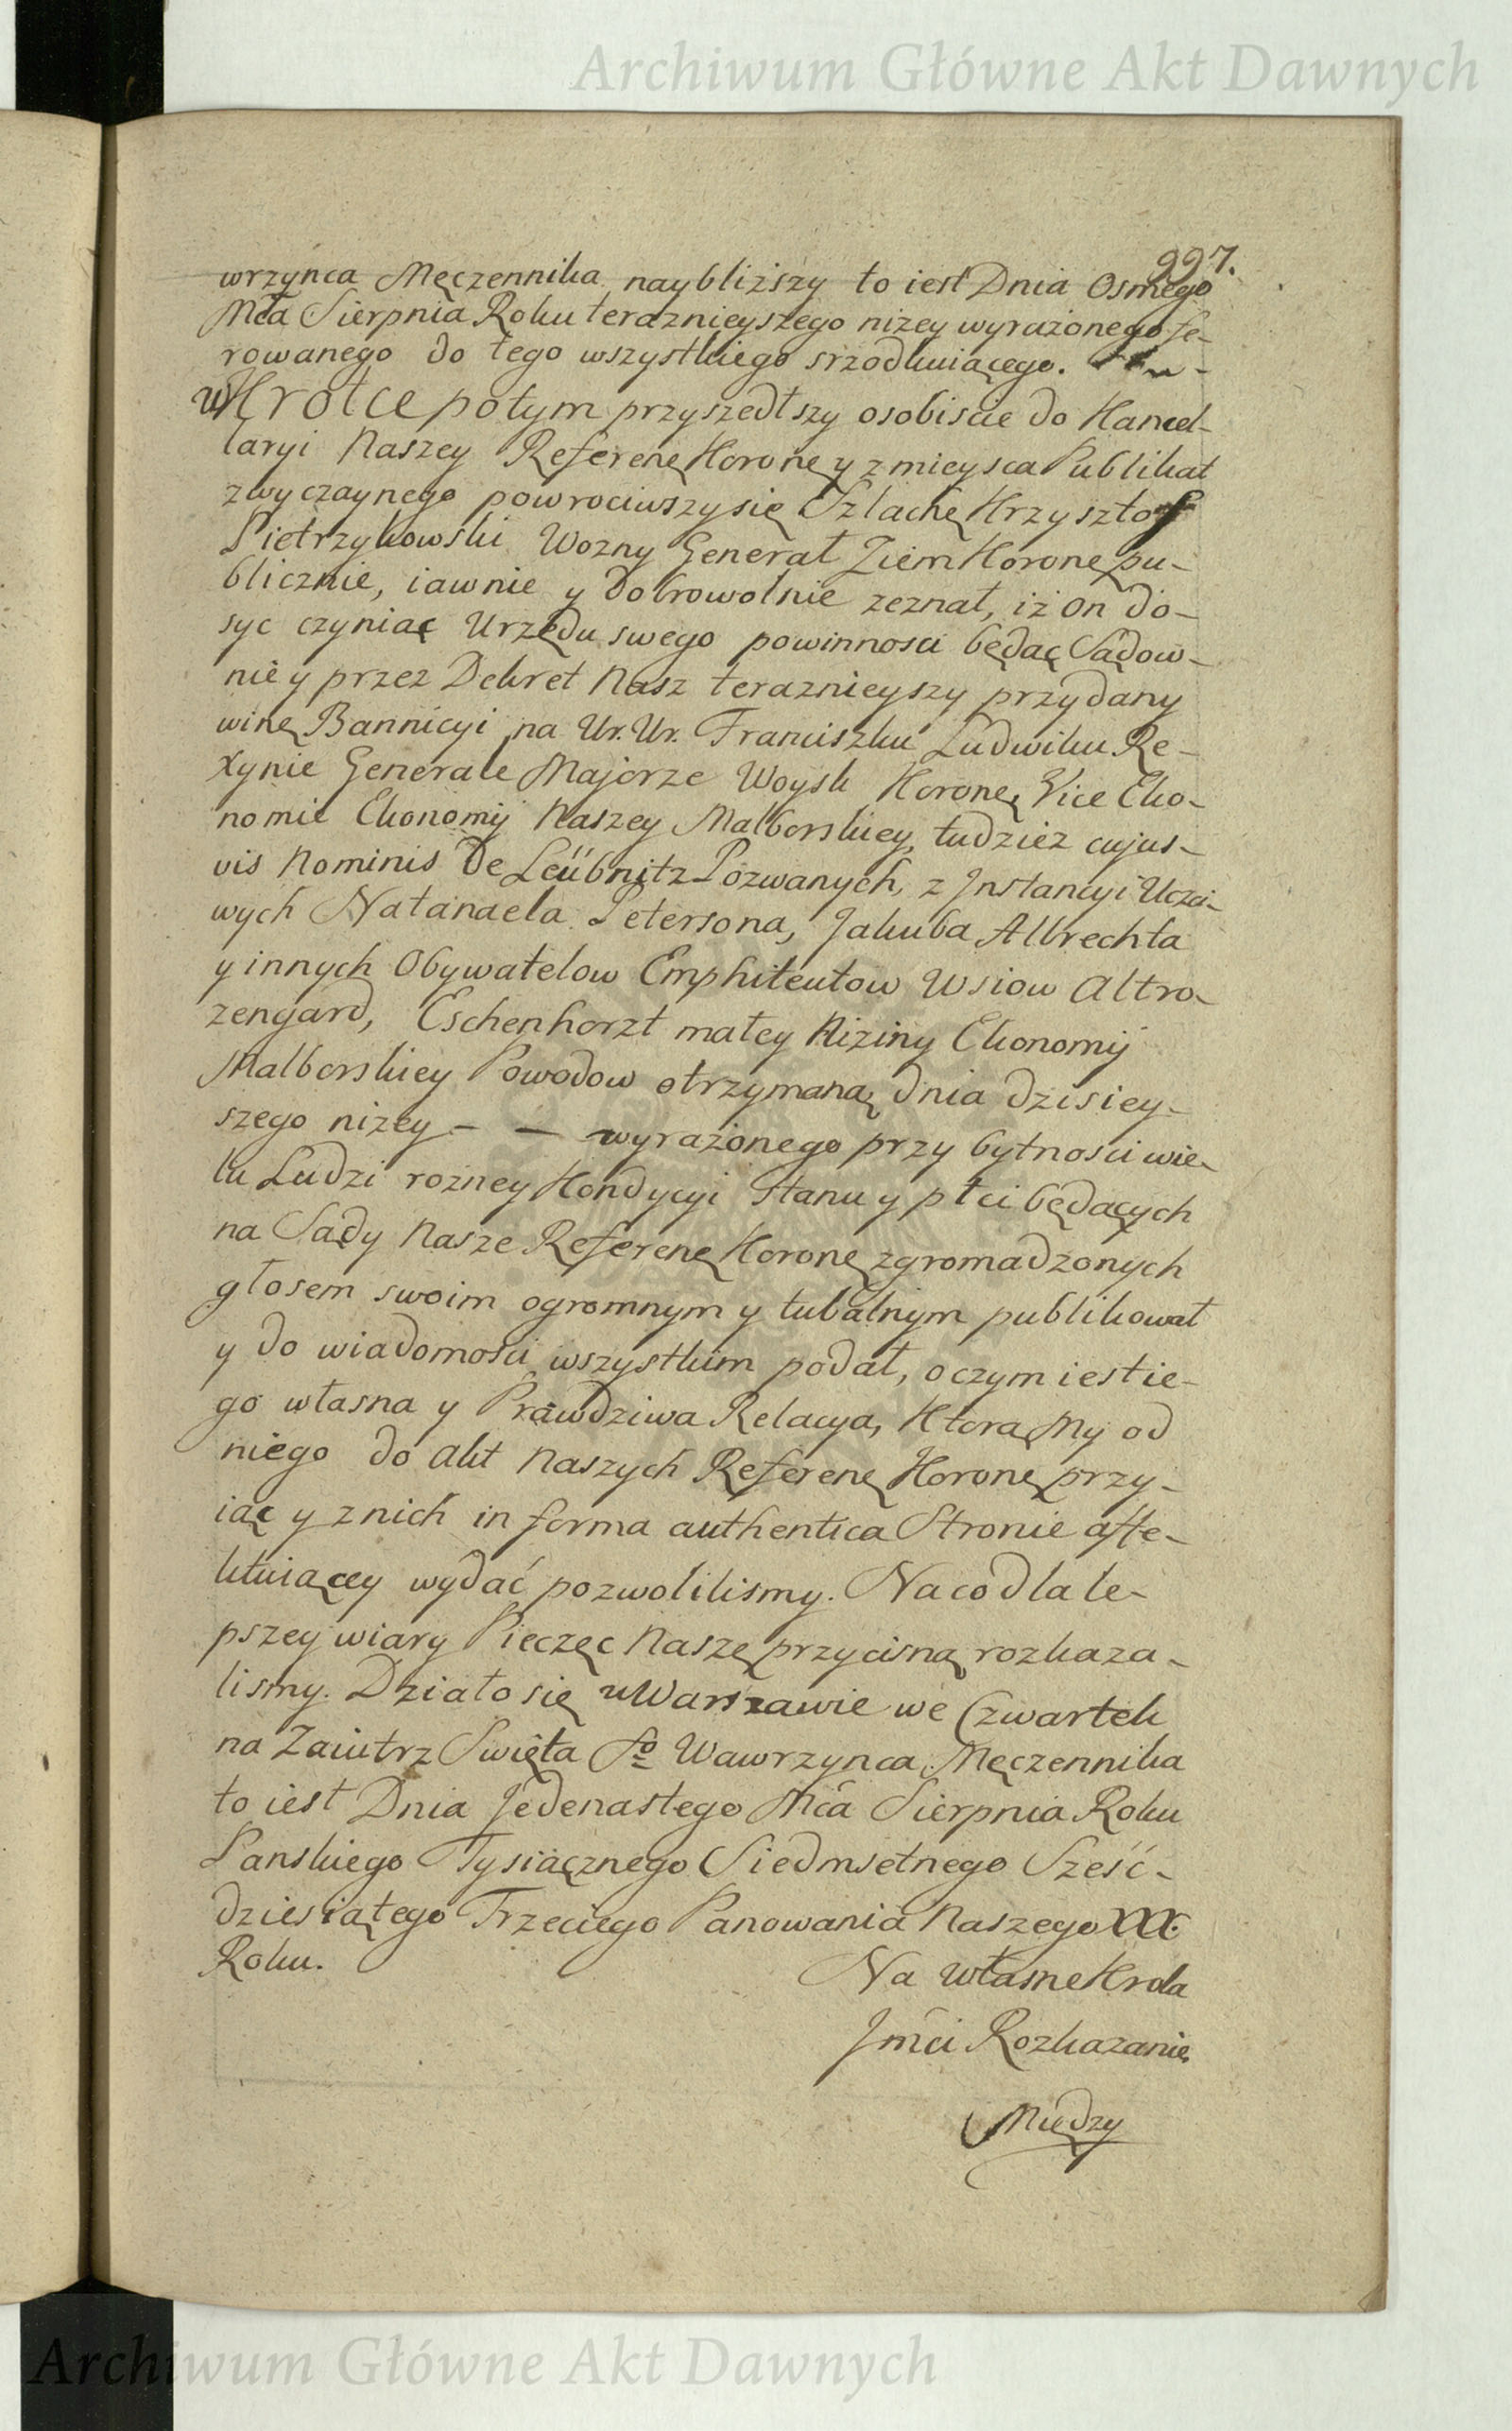 Archiwum Główne Akt Dawnych
997.
wrzynca Męczennika naybliższy to iest Dnia Osmego
Mca Sierpnia Roku teraznieyszego nizey wyrażonego fe-
rowanego do tego wszystkiego srzodkuiącego.
wKrotce potym przyszedłszy osobiscie do Kancel-
laryi Naszey Referenę Koronęy z mieysca Publikat
zwyczaynego powrociwszy się Szlachę Krzysztof
Pietrzykowski Wozny Generał Ziem Koronę pu-
blicznie, iawnie y dobrowolnie zeznał, iż on do-
syc czyniąc Urzędu swego powinnosci będąc Sądow-
nie y przez Dekret Nasz teraznieyszy przydany
winę Bannicyi na Ur. Ur. Franciszku Ludwiku Re-
xynie Generale Majorze Woysk Koronę, Vice Eko-
nomie Ekonomij Naszey Malborskiey, tudzież cujus-
vis Nominis De Leübnitz Pozwanych, z Jnstancyi Uczci-
wych Natanaela Petersona, Jakuba Albrechta
y innych Obywatelow Emphiteutow Wsiow Altro-
zengard, Eschenhorzt małey Niziny Ekonomij
Malborskiey Powodow otrzymaną dnia dzisiey-
szego nizey - - wyrażonego przy bytnosci wie-
lu Ludzi rozney Kondycyi Stanu y płci będących
na Sądy Nasze Referenę Koronę zgromadzonych
głosem swoim ogromnym y tubalnym publikował
y do wiadomosci wszystkim podał, o czym iest ie-
go własna y Prawdziwa Relacya, Ktorą My od
niego do Akt Naszych Referenę Koronę przy-
iąc y z nich in forma authentica Stronie affe-
ktuiącey wydać pozwolilismy. Na co dla le-
pszey wiary Pieczęc Naszę przycisną rozkaza-
lismy. Działo się w Warszawie we Czwartek
na Zaiutrz Swięta So Wawrzynca Męczennika
to iest Dnia Jedenastego Mca Sierpnia Roku
Panskiego Tysiącznego Siedmsetnego Sześć-
dziesiątego Trzeciego Panowania Naszego XXX.
Roku.
Na własne Krola
Jmći Rozkazanie
Między
Archiwum Główne Akt Dawnych